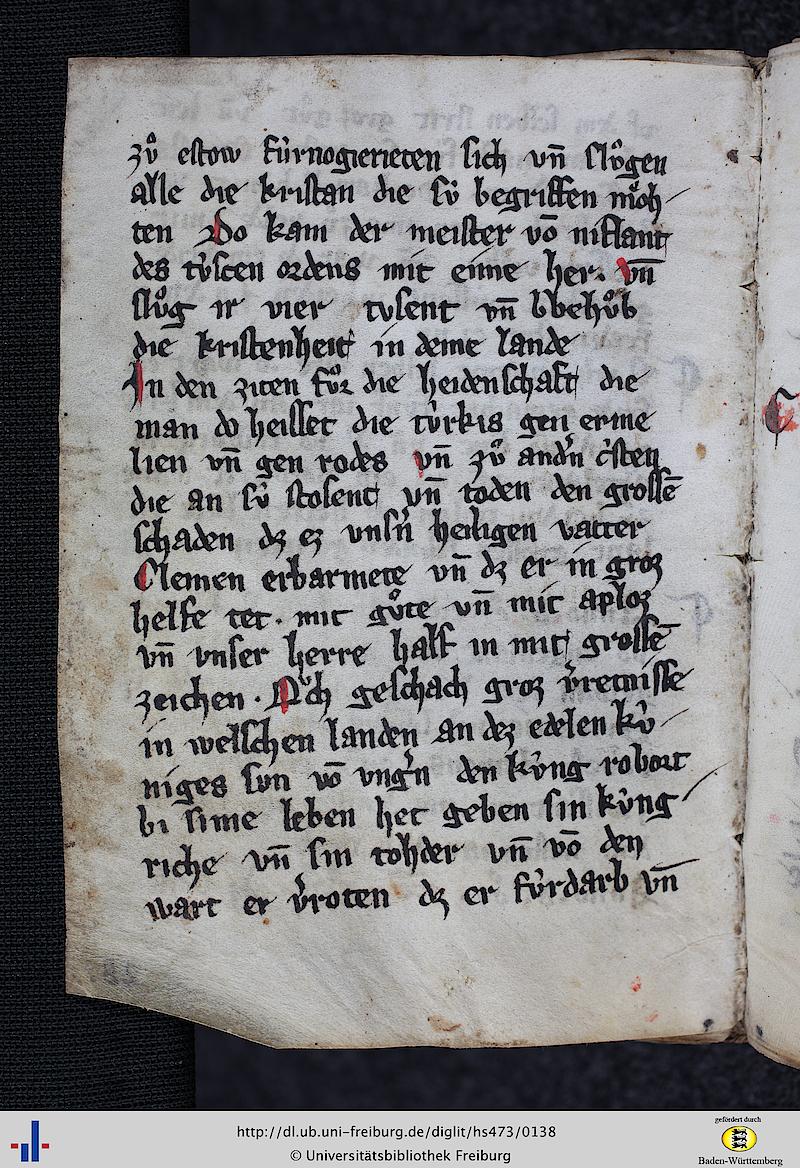 zuͦ estow fúrnogiereten sich vn̄ sluͦgen
alle die kristan die sú begriffen moͤh-
ten Do kam der meister vō niflant
des túscen ordens mit eime her. vn̄
sluͦg ir vier tvsent vn̄ bbehuͦb
die kristenheit in deme lande
In den ziten fuͦr die heidenschaft die
man do heisset die túrkis gen erme
lien vn̄ gen rodes vn̄ zuͦ andn̄ c̓sten
die an sú stosent vn̄ toden den grossē
schaden dz ez vnsn̄ heiligen vatter
Clemen erbarmete vn̄ dz er in groz
helfe tet. mit guͦte vn̄ mit aploz
vn̄ vnser herre half in mit grossē
zeichen. Oͮch geschach groz v̓retnisse
in welschen landen an dez edelen kú-
niges sun vō vngn̓ den kúng robort
bi sime leben het geben sin kúng-
riche vn̄ sin tohder vn̄ vō den
wart er v̓roten dz er fúrdarb vn̄
http://dl.ub.uni-freiburg.de/diglit/hs473/0138
© Universitätsbibliothek Freiburg
gefördert durch
Baden-Württemberg